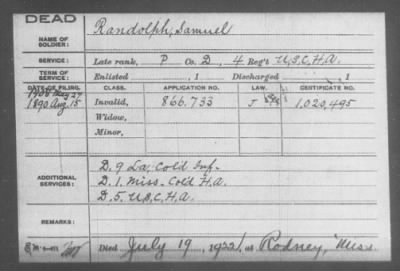 DEAD
NAME OF SOLDIER: Randolph, Samuel
SERVICE: Late rank, P Co. D, 4 Reg't U.S.C.H.A.
TERM OF SERVICE: Enlisted , 1 Discharged , 1
DATE OF FILING. CLASS. APPLICATION NO. LAW. CERTIFICATE NO.
1908 May 27
1890 Aug. 15 Invalid, 866.733 J 1,020,495
Widow,
Minor,
ADDITIONAL SERVICES:
D. 9 La. Cold Inf.
D. 1. Miss. Cold H.A.
D. 5. U.S.C.H.A.
REMARKS:
Died July 19, 1922, at Rodney, Miss.